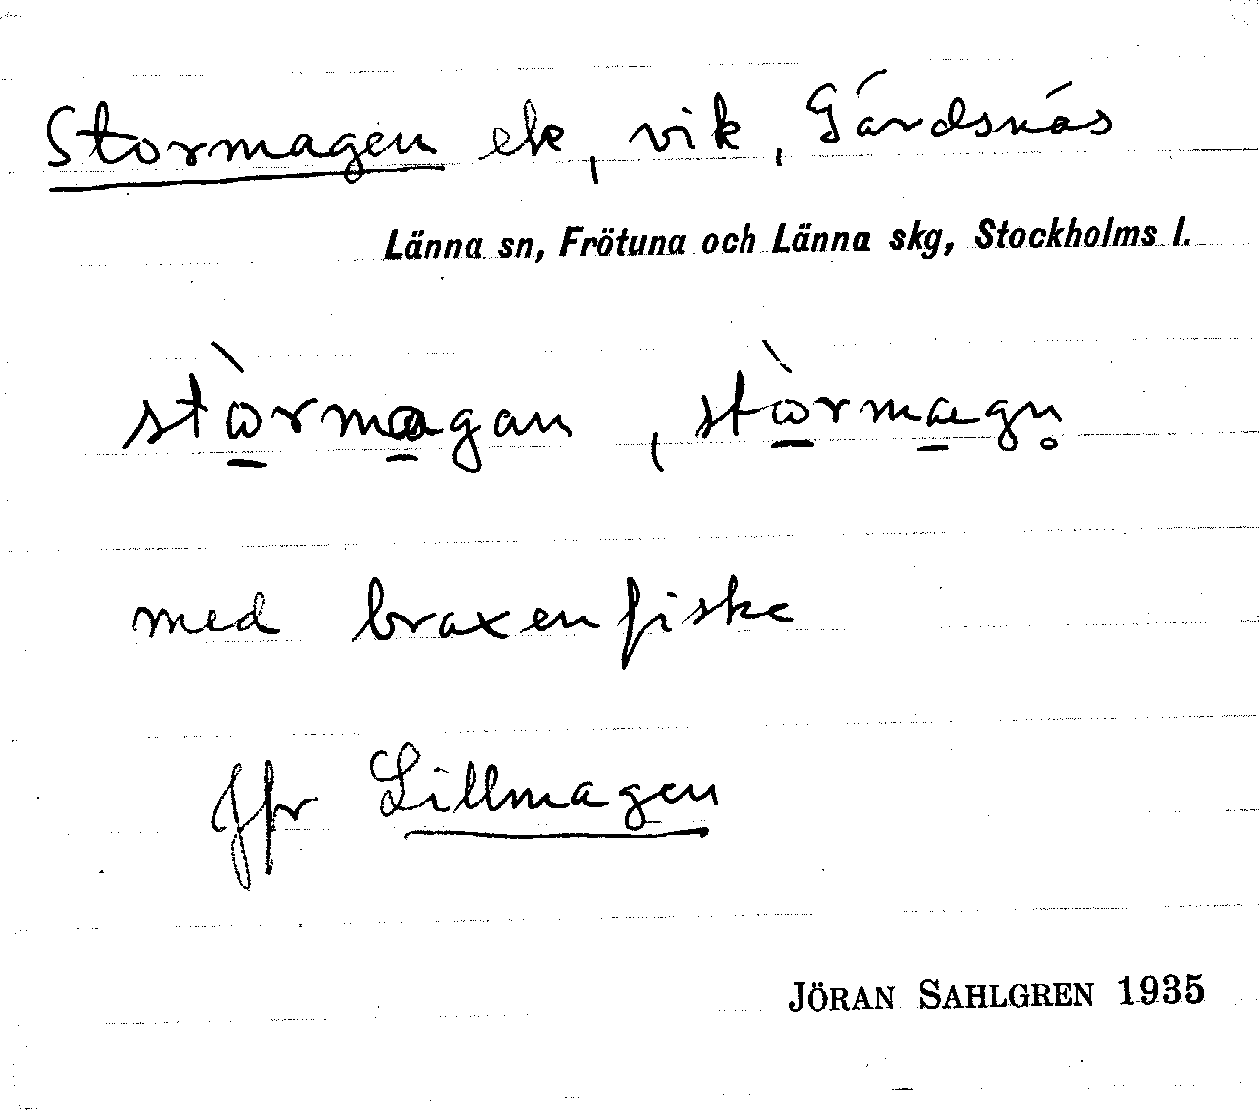 Stormagen ek, vik, Gärdsnäs
Länna sn, Frötuna och Länna skg, Stockholms l.
stòrmagan, stòrmagn̥
med braxenfiske
Jfr Lillmagen
JÖRAN SAHLGREN 1935